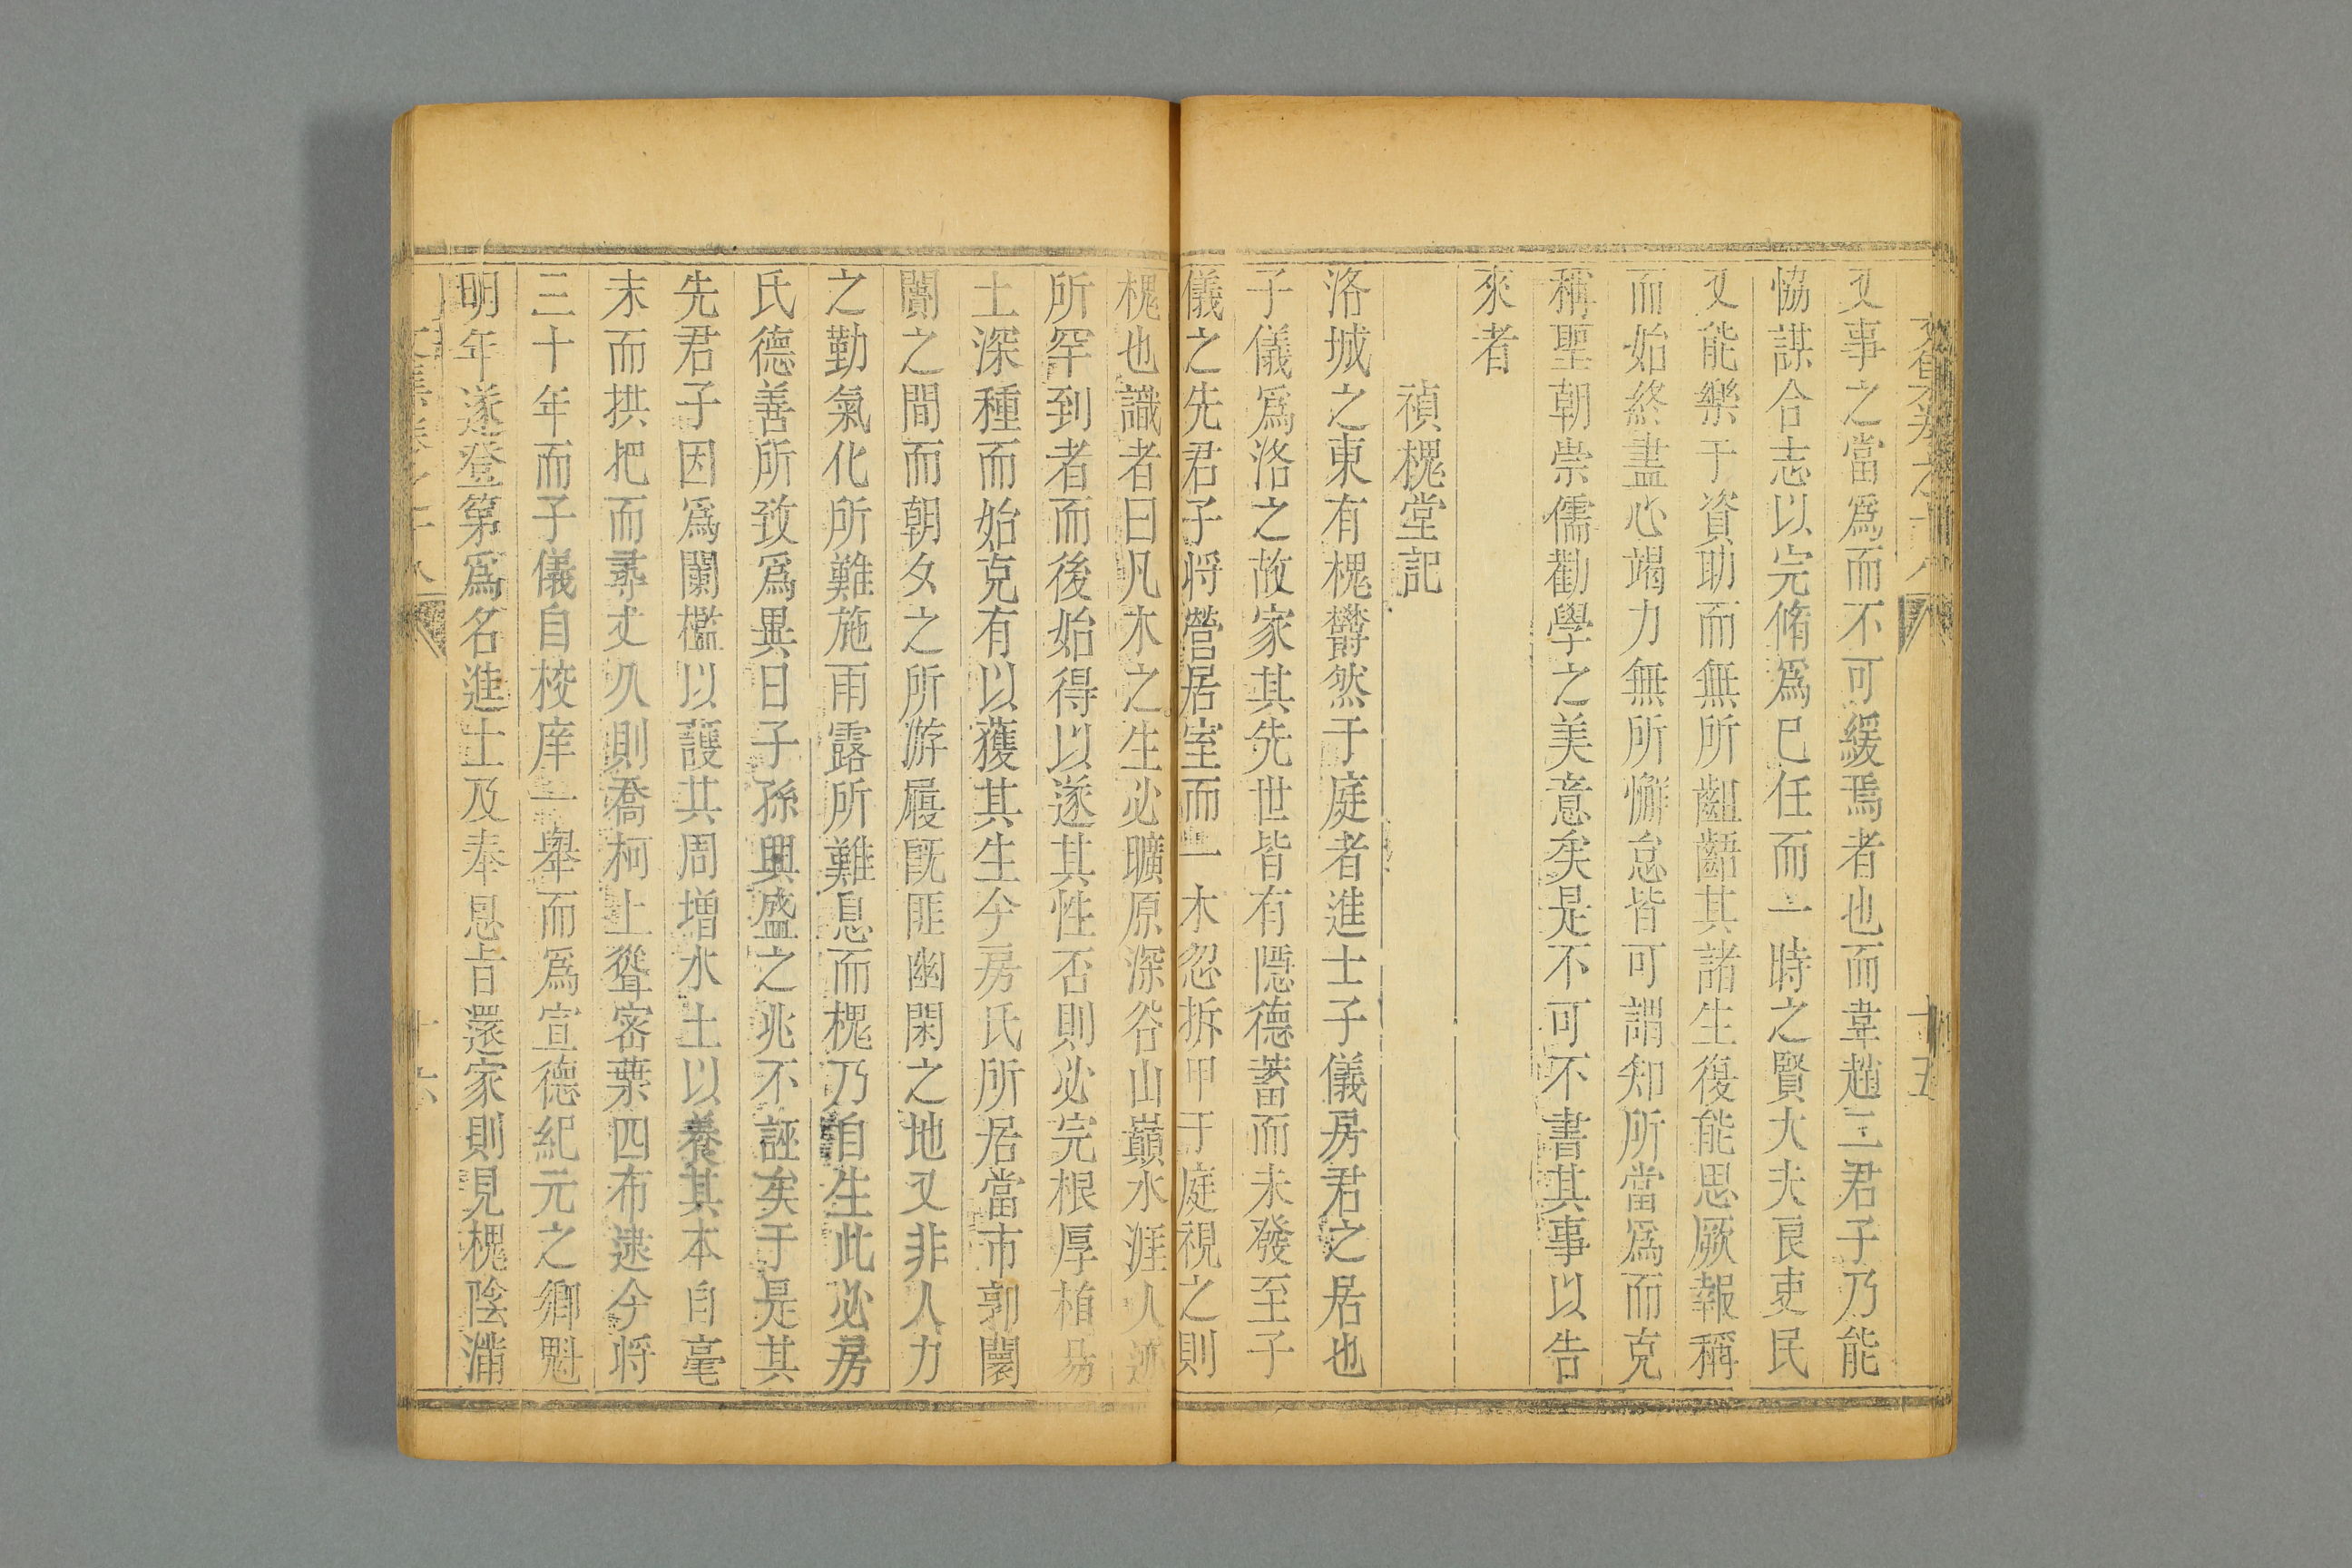 文集卷之十八
十五
又事之當爲而不可緩焉者也而韋趙二君子乃能
恊謀合志以完脩爲已任而一時之賢大夫良吏民
又能樂于資助而無所齟齬其諸生復能思厥報稱
而始終盡心竭力無所懈怠皆可謂知所當爲而克
稱聖朝崇儒勸學之美意矣是不可不書其事以告
來者
禎槐堂記
洛城之東有槐欝然于庭者進士子儀房君之居也
子儀爲洛之故家其先世皆有隱德蓄而未發至子
儀之先君子将營居室而一木忽拆甲于庭視之則
槐也識者曰凡木之生必曠原深谷山巔水涯人迹
所罕到者而後始得以遂其性否則必完根厚植易
土深種而始克有以獲其生今房氏所居當市郭闤
闠之間而朝夕之所游屐既匪幽閑之地又非人力
之勤氣化所難施雨露所難息而槐乃自生此必房
氏德善所致爲異日子孫興盛之兆不誣矣于是其
先君子因爲闌檻以護其周増水土以養其本自毫
末而拱把而尋丈久則喬柯上聳密葉四布逮今将
三十年而子儀自校庠一舉而爲宣德紀元之鄉魁
明年遂登第爲名進士及奉恩旨還家則見槐陰滿
文集卷之十八
十六